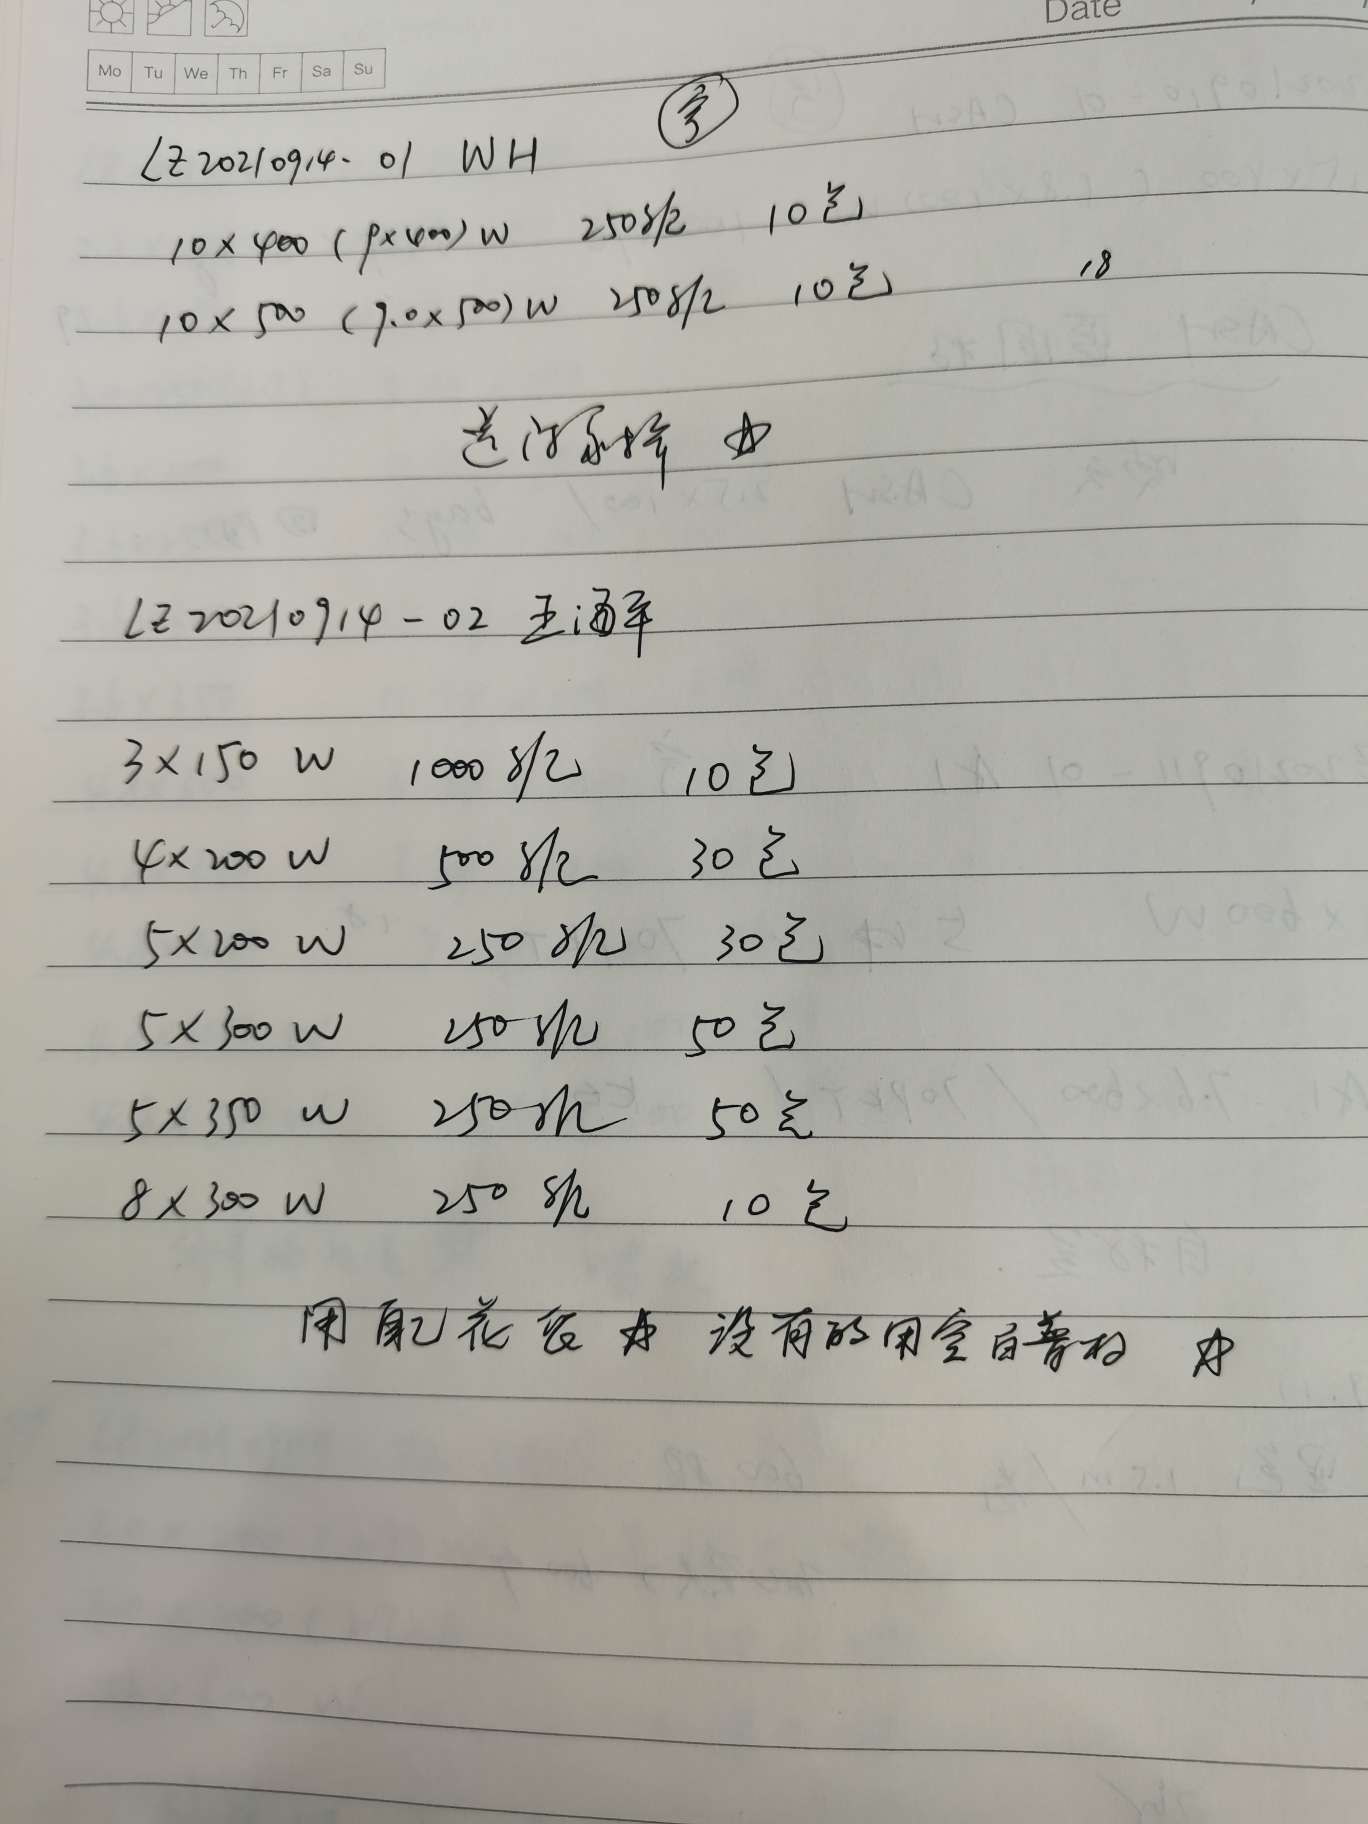 Date
Mo Tu We Th Fr Sa Su
LZ20210914-01 WH
10×400(9×400)W 250g/包 10包
10×500(9.0×500)W 250g/包 10包 18
LZ20210914-02 王海军
3×150 W 1000g/包 10包
4×200 W 500g/包 30包
5×200 W 250g/包 30包
5×300 W 250g/包 50包
5×350 W 250g/包 50包
8×300 W 250g/包 10包
用自己花袋☆ 没有的用空白 ☆